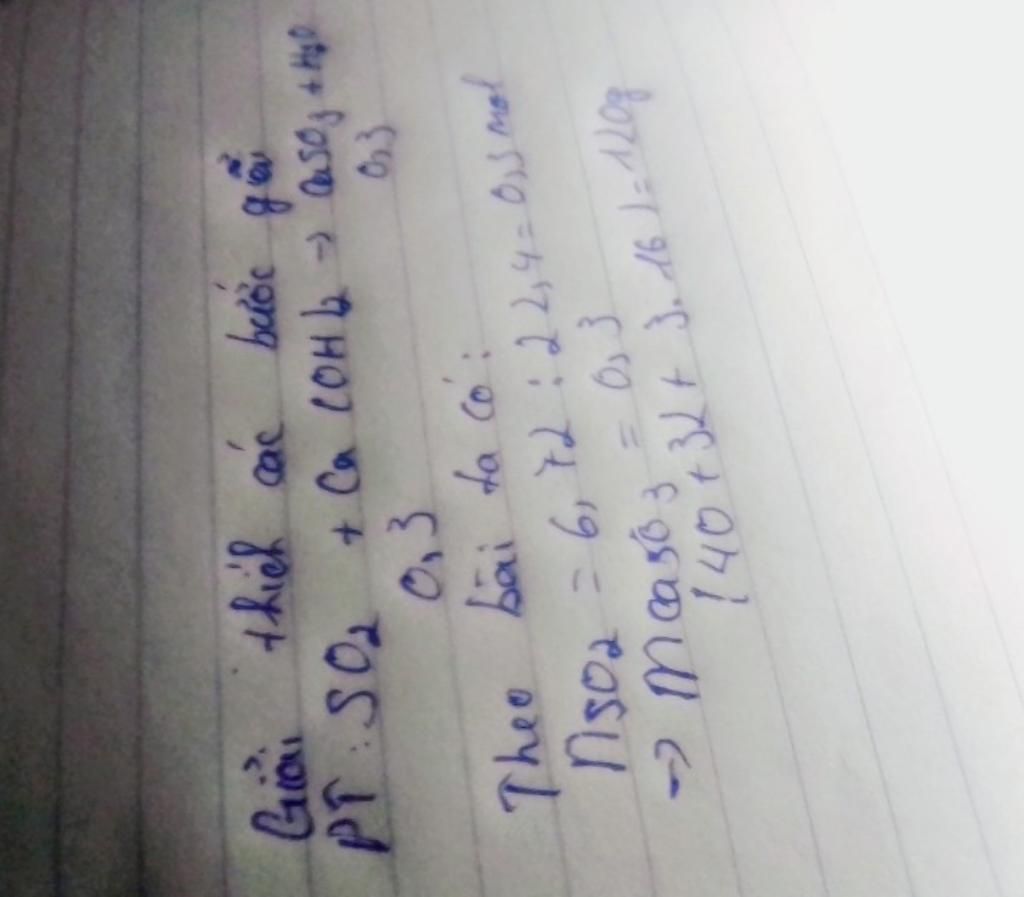 Giải thích các bước giải
PT : SO2 + Ca(OH)2 → CaSO3 + H2O
0,3 0,3
Theo bài ta có :
nSO2 = 6,72 : 22,4 = 0,3 mol
→ mCaSO3 = 0,3
(40 + 32 + 3.16) = 120g